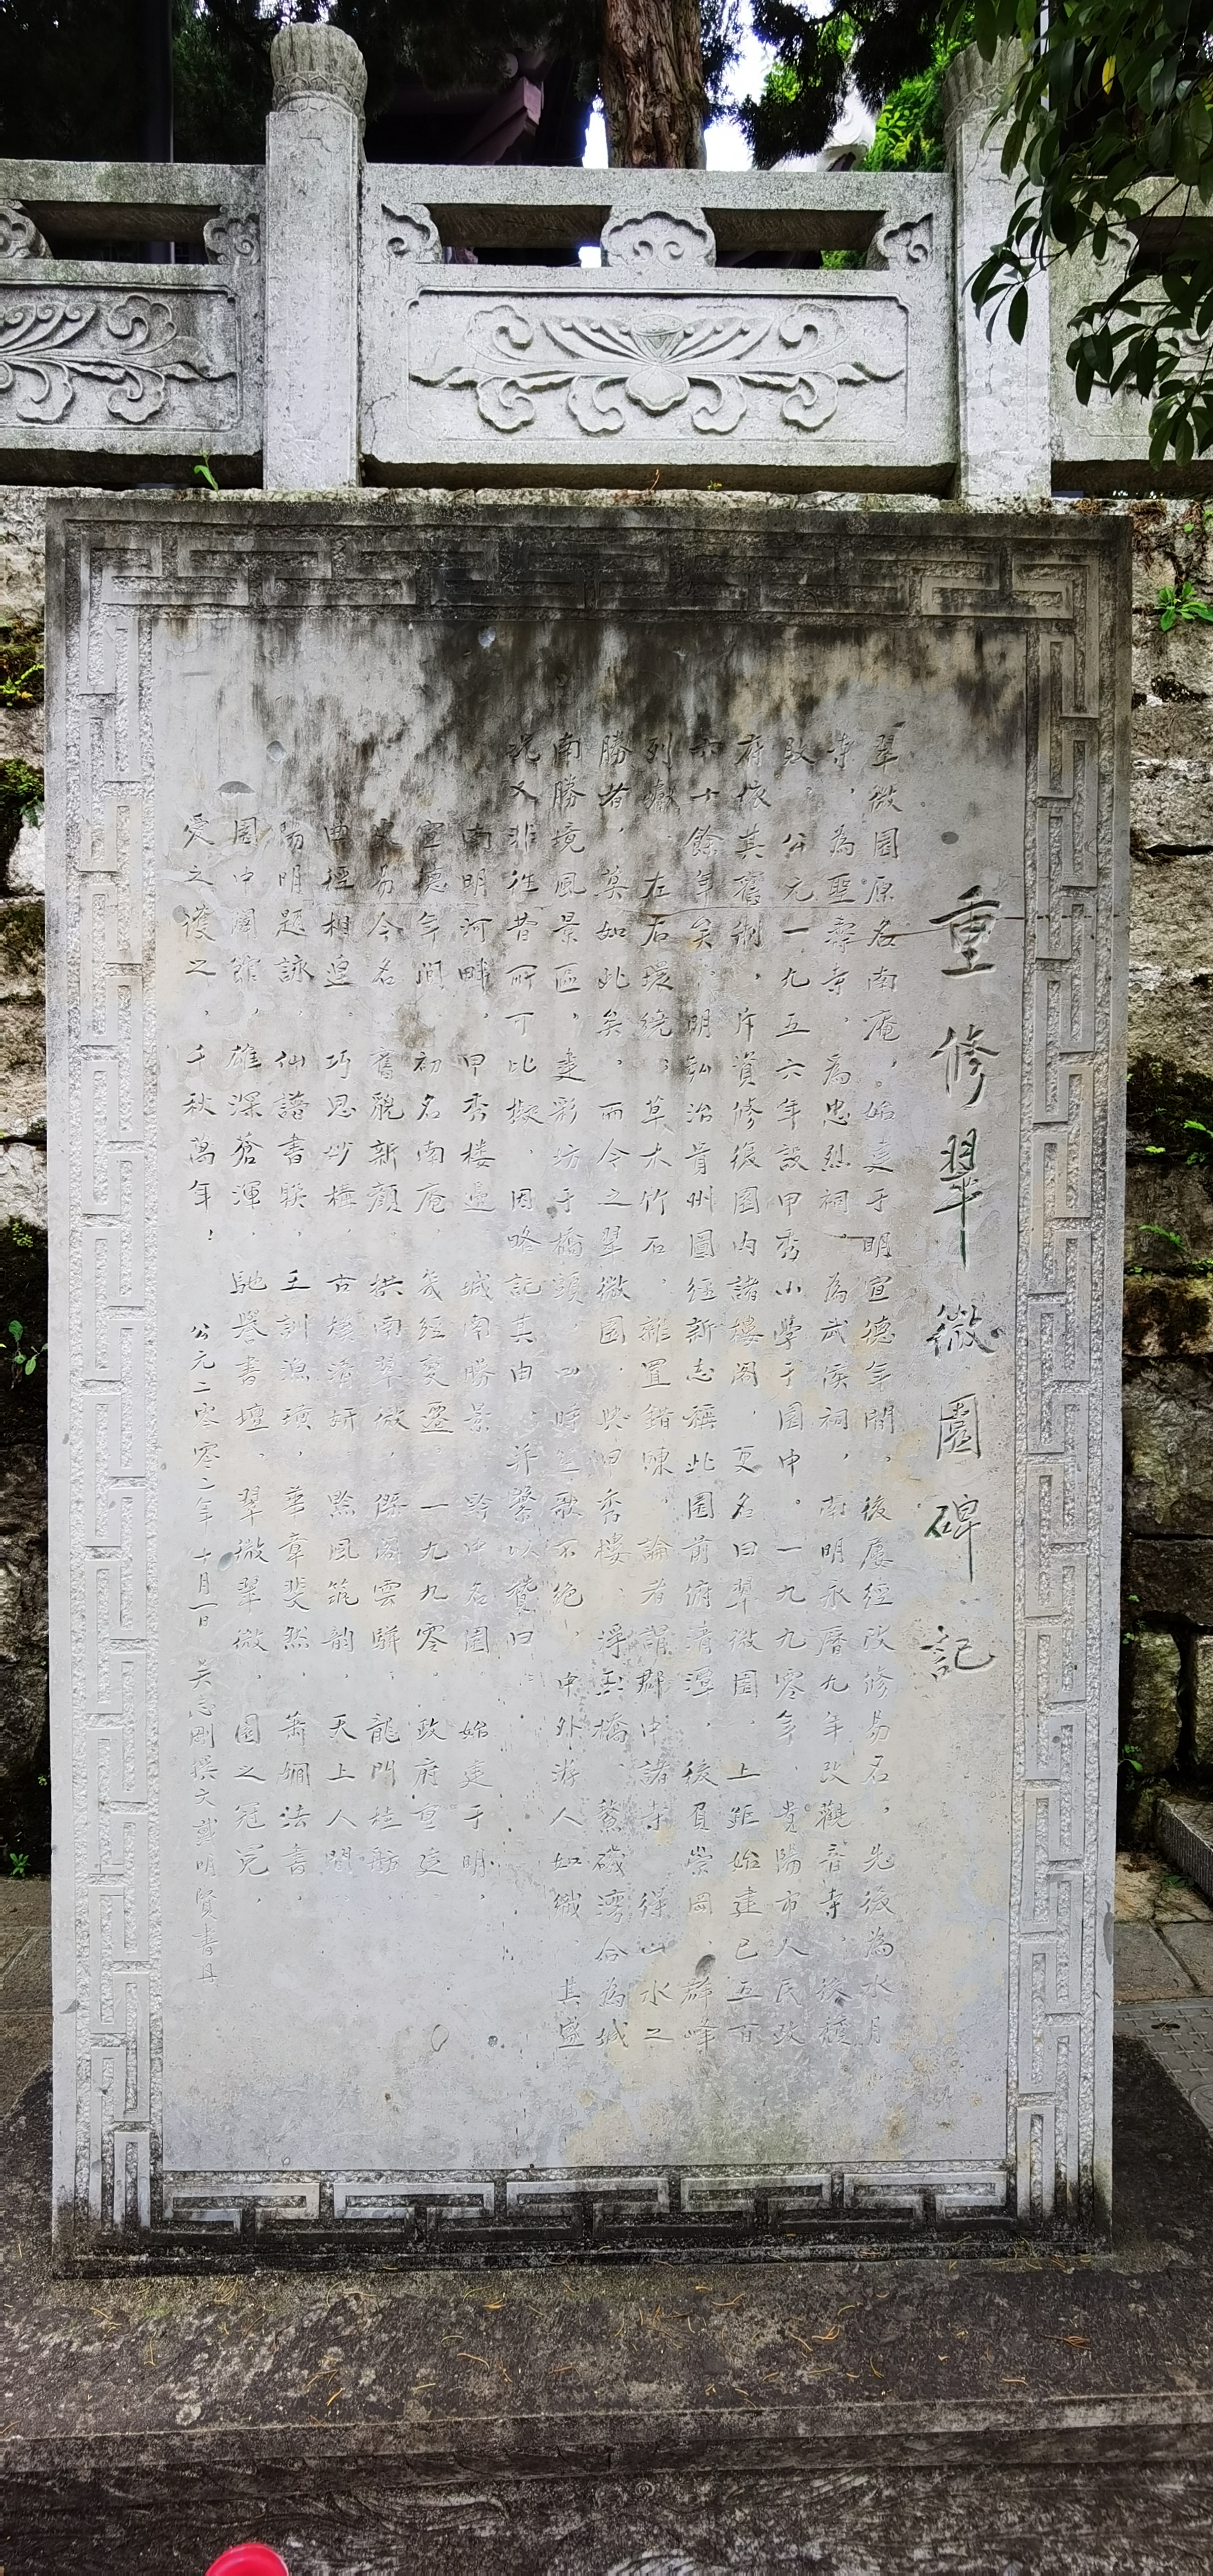 重修翠微園碑記
翠微園原名南庵，始建于明宣德年間，後屢經改修易名，先後為水月
寺，為聖壽寺，為忠烈祠，為武侯祠，南明永曆九年改觀音寺，後頹
敗，公元一九五六年設甲秀小學于園中。一九九零年，貴陽市人民政
府依其舊制，斥資修復園内諸樓閣，更名曰翠微園，上距始建已五百
餘年矣。明弘治貴州圖經新志稱此園前俯清潭，後負崇岡，群峰
列，左右環繞；草木竹石，雜置錯陳，論者謂郡中諸寺得山水之
勝者，莫如此矣，而今之翠微園，與甲秀樓、浮玉橋、鰲磯灣合為城
南勝境風景區，建彩坊于橋頭，四時之歌不絕，中外游人如織，其盛
况又非往昔所可比擬，因略記其由，并繫以贊曰：
南明河畔，甲秀樓邊，城南勝景，黔中名園，始建于明，
宣德年間，初名南庵，幾經變遷，一九九零，政府重建，
更易今名，舊貌新顏，拱南翠微，閣雲，龍門桂舫，
曲徑相，巧思妙構，古清妍，黔風筑韵，天上人間，
陽明題詠，仙譜書聯，王訓漁璜，華章斐然，蕭嫻法書，
園中闢館，雄深蒼渾，馳譽書壇，翠微翠微，園之冠冕，
愛之護之，千秋萬年！ 公元二零零二年十月一日 吴志剛撰文 戴明賢書丹